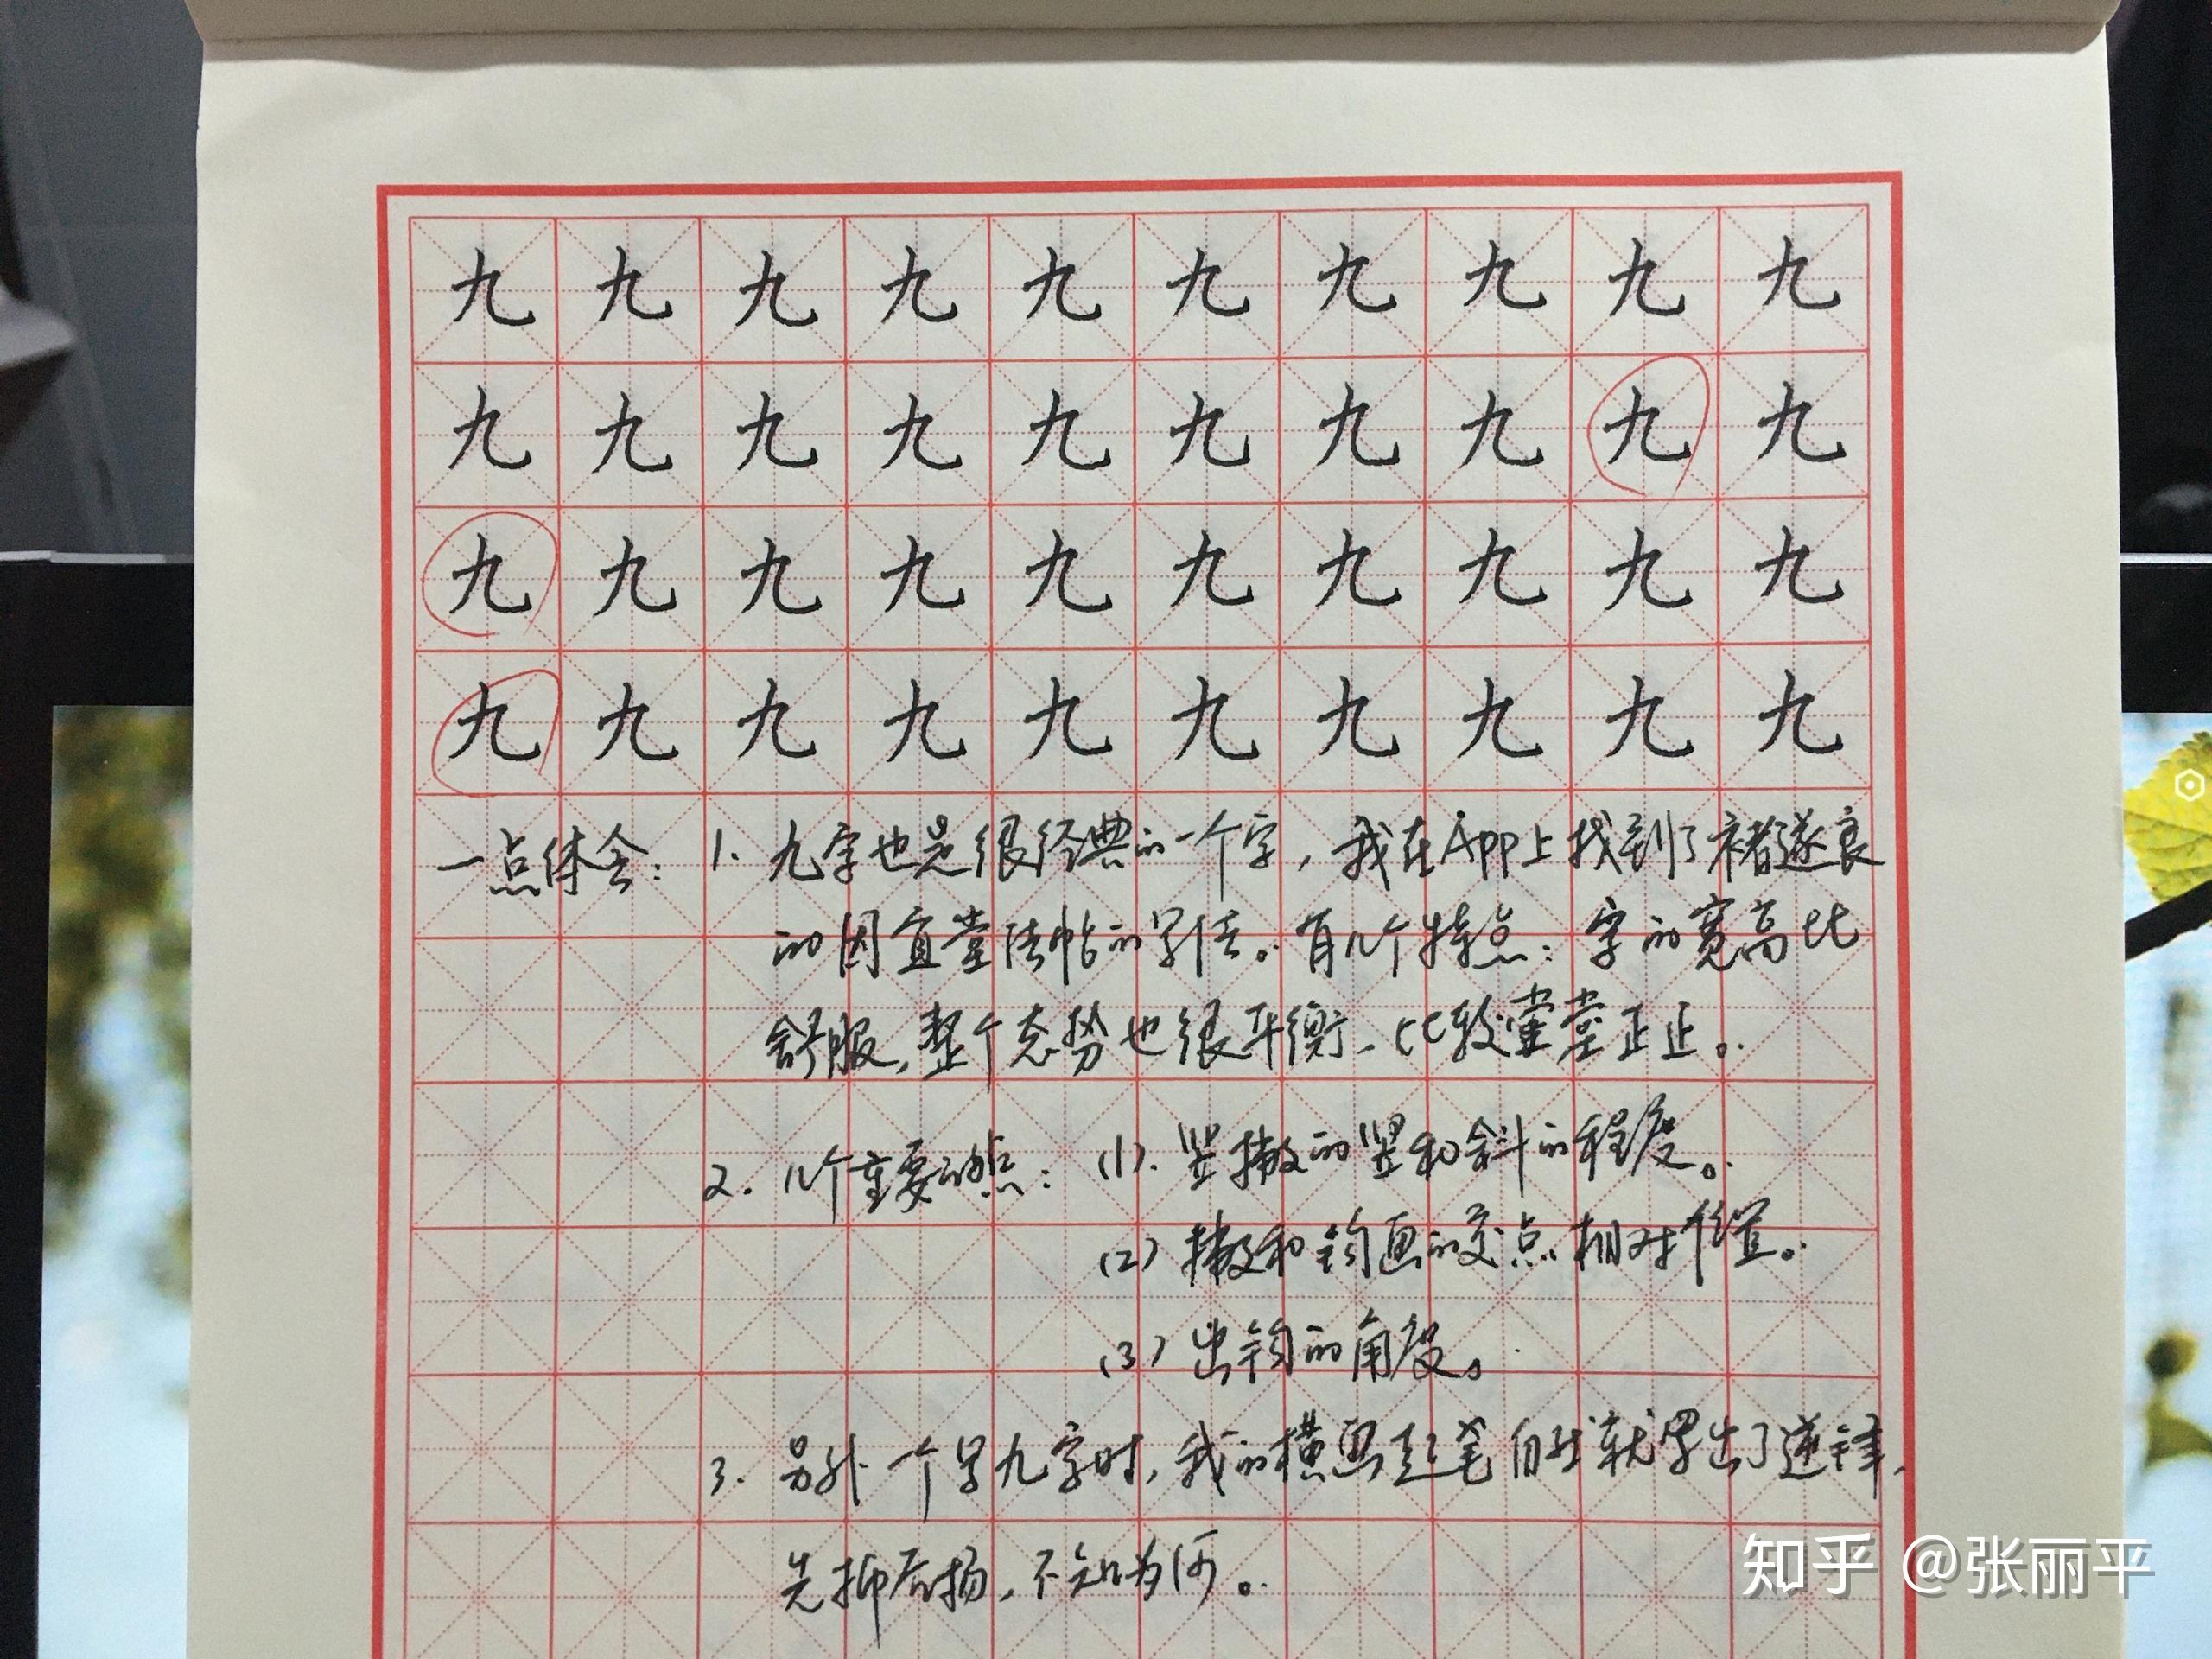 九九九九九九九九九九
九九九九九九九九九九
九九九九九九九九九九
九九九九九九九九九九
一点体会：1. 九字也是很经典的一个字，我在App上找到了褚遂良
的因宜堂法帖的写法。有几个特点：字的宽高比
舒服，整个态势也很平衡、比较堂堂正正。
2. 几个重要的点：(1). 竖撇的竖和斜的程度。
(2) 撇和钩画的交点相对位置。
(3) 出钩的角度。
3. 另外一个写九字时，我的横画起笔自然就写出了逆锋，
先抑后扬，不知为何。
知乎 @张丽平